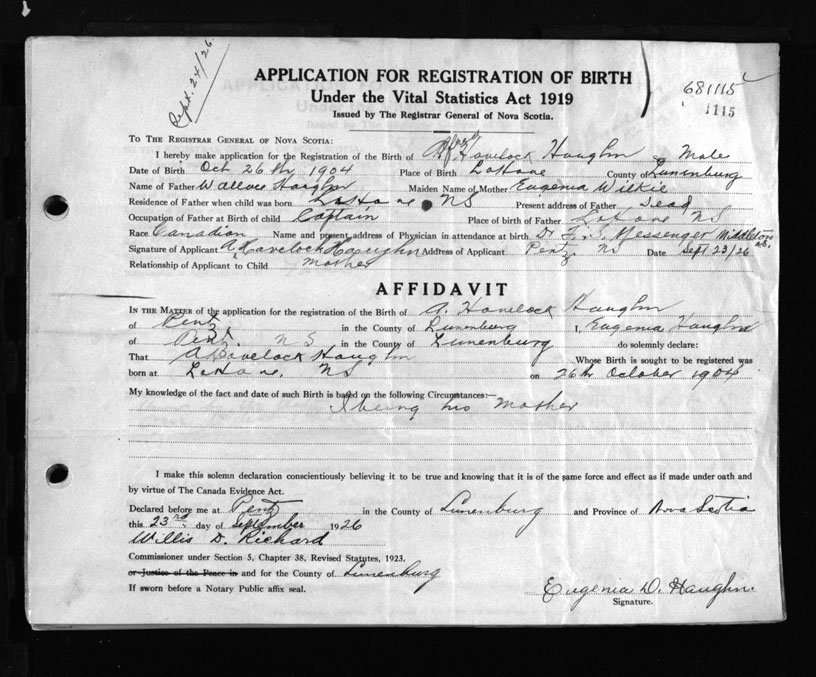 Sept. 24/26
APPLICATION FOR REGISTRATION OF BIRTH
Under the Vital Statistics Act 1919
Issued by The Registrar General of Nova Scotia.
681115
1115
TO THE REGISTRAR GENERAL OF NOVA SCOTIA:
Alfred
I hereby make application for the Registration of the Birth of A. Havelock Haughn Male
Date of Birth Oct 26th 1904 Place of Birth LaHave County of Lunenburg
Name of Father Wallace Haughn Maiden Name of Mother Eugenia Wilkie
Residence of Father when child was born LaHave NS Present address of Father Dead
Occupation of Father at Birth of child Captain Place of birth of Father LaHave NS
Race Canadian Name and present address of Physician in attendance at birth Dr F. S. Messenger Middleton NS.
Signature of Applicant A Havelock Haughn Address of Applicant Pentz NS Date Sept 23/26
Relationship of Applicant to Child mother
AFFIDAVIT
IN THE MATTER of the application for the registration of the Birth of A. Havelock Haughn
of Pentz in the County of Lunenburg , Eugenia Haughn
of Pentz. NS in the County of Lunenburg do solemnly declare:
That A Havelock Haughn Whose Birth is sought to be registered was
born at LaHave, NS on 26th October 1904
My knowledge of the fact and date of such Birth is based on the following Circumstances:—
I being his Mother
I make this solemn declaration conscientiously believing it to be true and knowing that it is of the same force and effect as if made under oath and
by virtue of The Canada Evidence Act.
Declared before me at Pentz in the County of Lunenburg and Province of Nova Scotia
this 23rd day of September 1926
Willis D. Richard
Commissioner under Section 5, Chapter 38, Revised Statutes, 1923.
or Justice of the Peace in and for the County of Lunenburg
If sworn before a Notary Public affix seal.
Eugenia D. Haughn.
Signature.